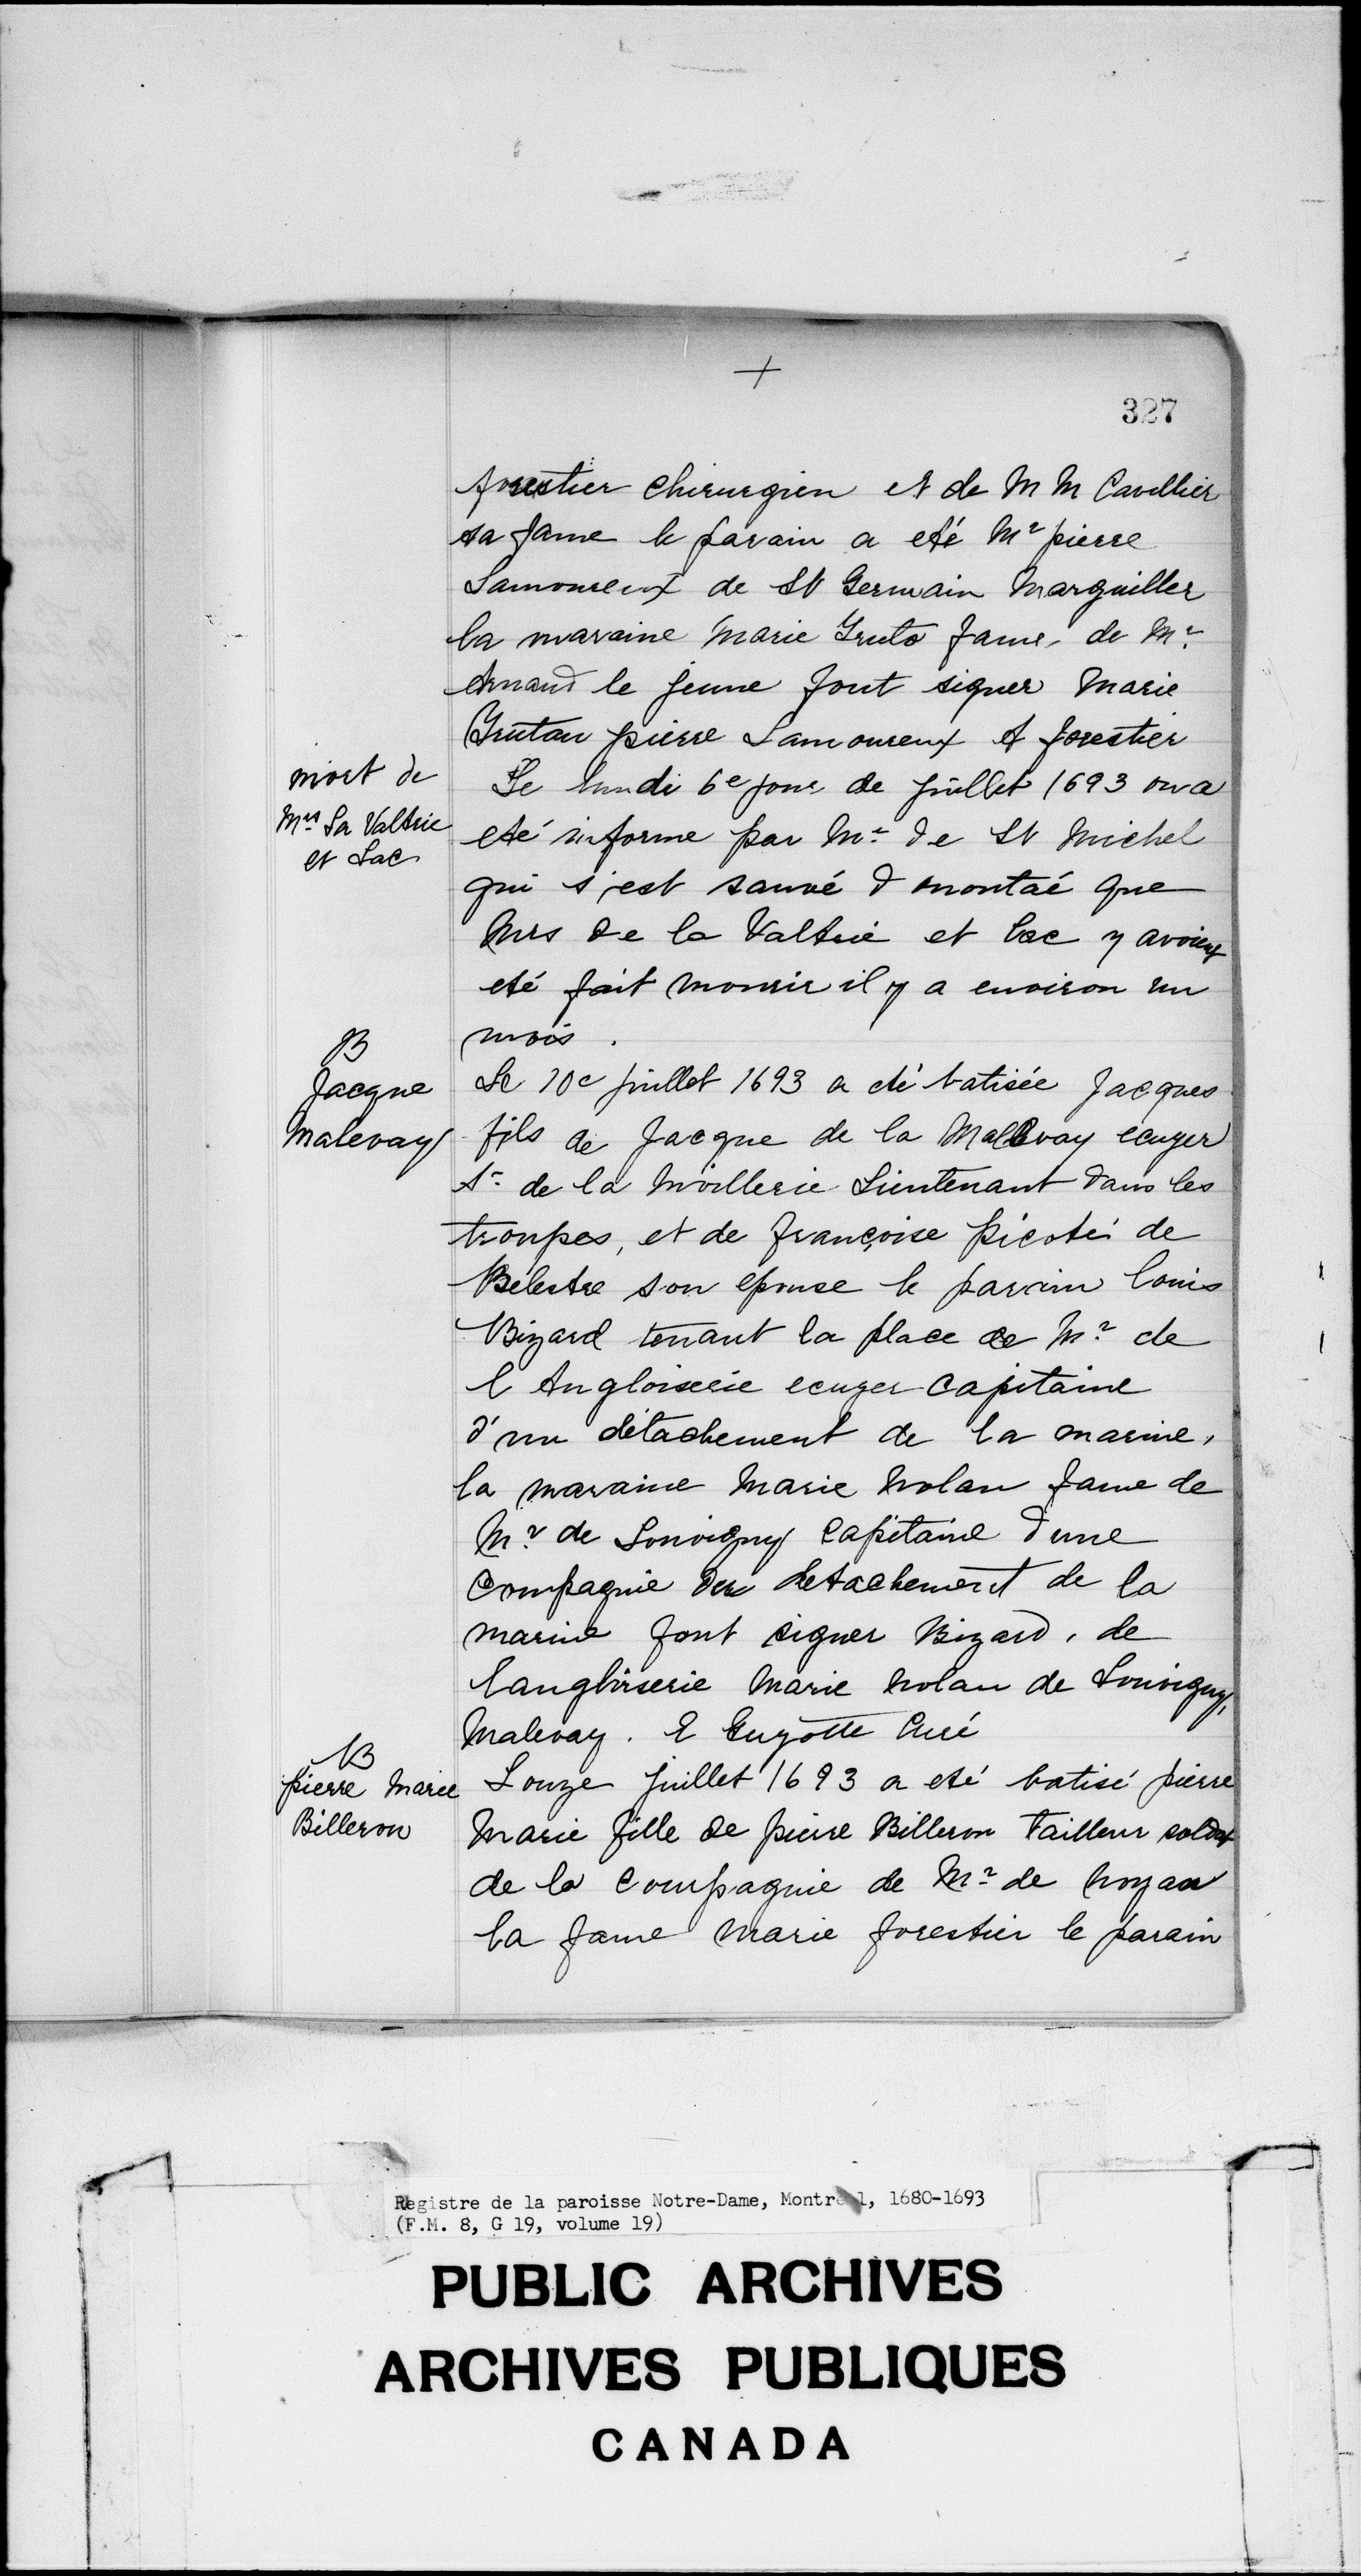 +
327
forestier chirurgien et de M M Cavillier
sa fame le parain a eté Mr pierre
Lamoureux de St Germain Marguiller
la maraine Marie Truto fame de Mr
Arnaud le jeune font signer Marie
Trutau pierre Lamoureux A forestier
mort de
Mrs La Valtrie
et Lac
Le lundi 6e jour de juillet 1693 on a
eté informe par Mr de St Michel
qui s'est sauvé d montaé que
Mrs de la Valtrie et lac y avoient
eté fait mourir il y a environ un
mois.
B
Jacque
Malevay
Le 10e juillet 1693 a eté batisée Jacques
fils de Jacque de la Mallevay ecuyer
sr de la Moillerie Lieutenant dans les
troupes, et de françoise picoté de
Belestre son epouse le parain louis
Bizard tenant la place de Mr de
l Angloiserie ecuyer capitaine
d'un détachement de la marine,
la maraine Marie Nolan fame de
Mr de Louvigny capitaine d'une
compagnie du detachement de la
marine font signer Bizard, de
langloiserie Marie Nolan de Louvigny,
Malevay. E Guyotte Curé
B
pierre Marie
Billeron
Lonze juillet 1693 a eté batisé pierre
Marie fille de pierre Billeron tailleur soldat
de la compagnie de Mr de Noyan
la fame Marie forestier le parain
Registre de la paroisse Notre-Dame, Montréal, 1680-1693
(F.M. 8, G 19, volume 19)
PUBLIC ARCHIVES
ARCHIVES PUBLIQUES
CANADA